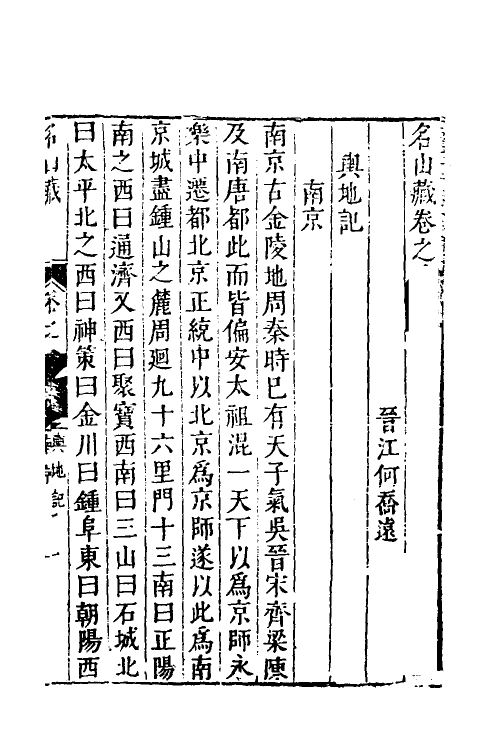 名山藏卷之
晉江何喬遠
輿地記
南京
南京古金陵地周秦時已有天子氣吳晉宋齊梁陳
及南唐都此而皆偏安太祖混一天下以爲京師永
樂中遷都北京正統中以北京爲京師遂以此爲南
京城盡鍾山之麓周廻九十六里門十三南曰正陽
南之西曰通濟又西曰聚寶西南曰三山曰石城北
曰太平北之西曰神策曰金川曰鍾阜東曰朝陽西
名山藏 卷之 輿地記 一